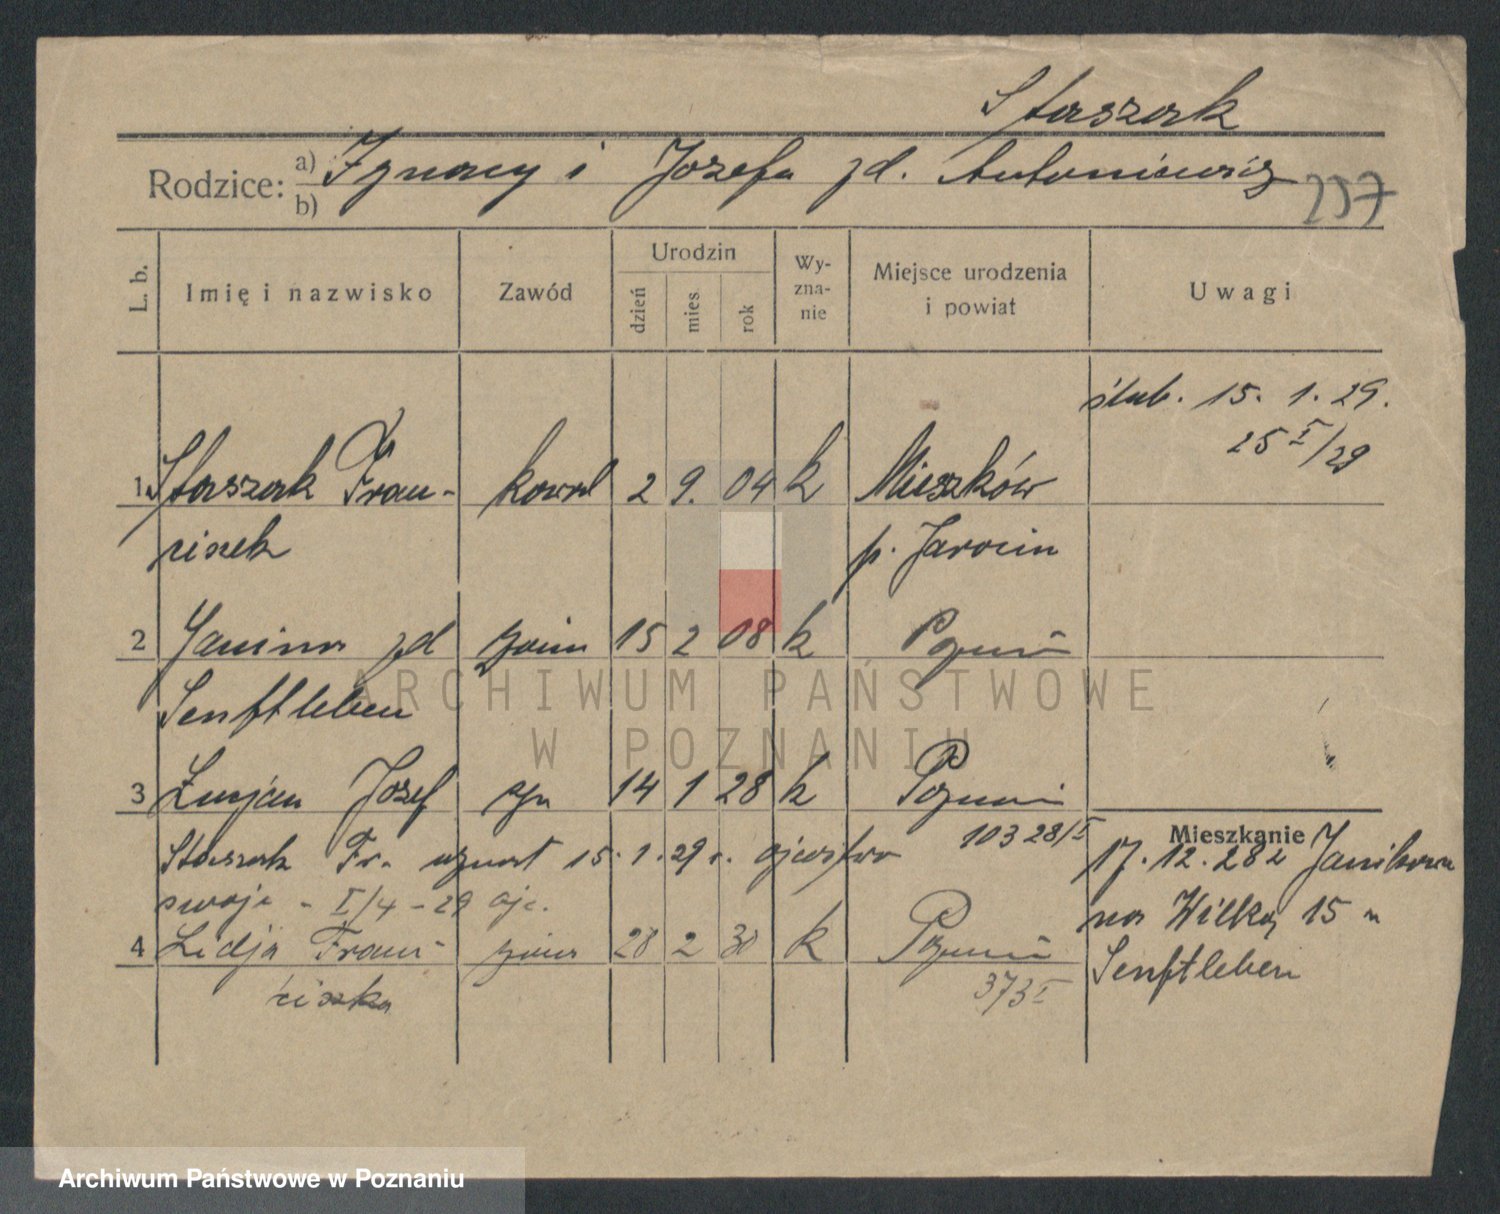 Staszak
Rodzice: a) Ignacy i Józefa zd. Antoniewicz
b)
237
L. b. Imię i nazwisko Zawód Urodzin dzień mies. rok Wy-zna-nie Miejsce urodzenia i powiat Uwagi
ślub. 15. 1. 29.
25 I/29
1 Staszak Fran- kowal 2 9. 04 k Mieszków
ciszek p. Jarocin
2 Janina zd żona 15 2 08 k Poznań
Senftleben
3 Łucjan Józef syn 14 1 28 k Poznań
103 28/I
Staszak Fr. uznał 15. 1. 29 r. ojcostwo
swoje - I/4 - 29
4 Lidja Fran- 28 2 30 k Poznań
ciszka 373 I
Mieszkanie
17. 12. 28 z Janikowa
na Wilką 15 u
Senftleben
ARCHIWUM PAŃSTWOWE
W POZNANIU
Archiwum Państwowe w Poznaniu